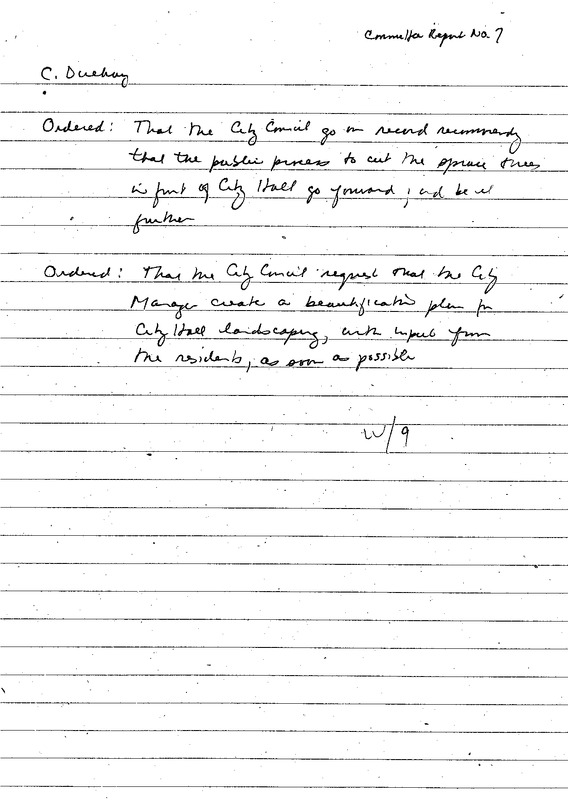 Committee Report No. 7
C. Duehay
Ordered: That the City Council go on record recommendg
that the public process to cut the spruce trees
in front of City Hall go forward; and be it
further
Ordered: That the City Council request that the City
Manager create a beautification plan for
City Hall landscaping, with input from
the residents, as soon as possible
W/9